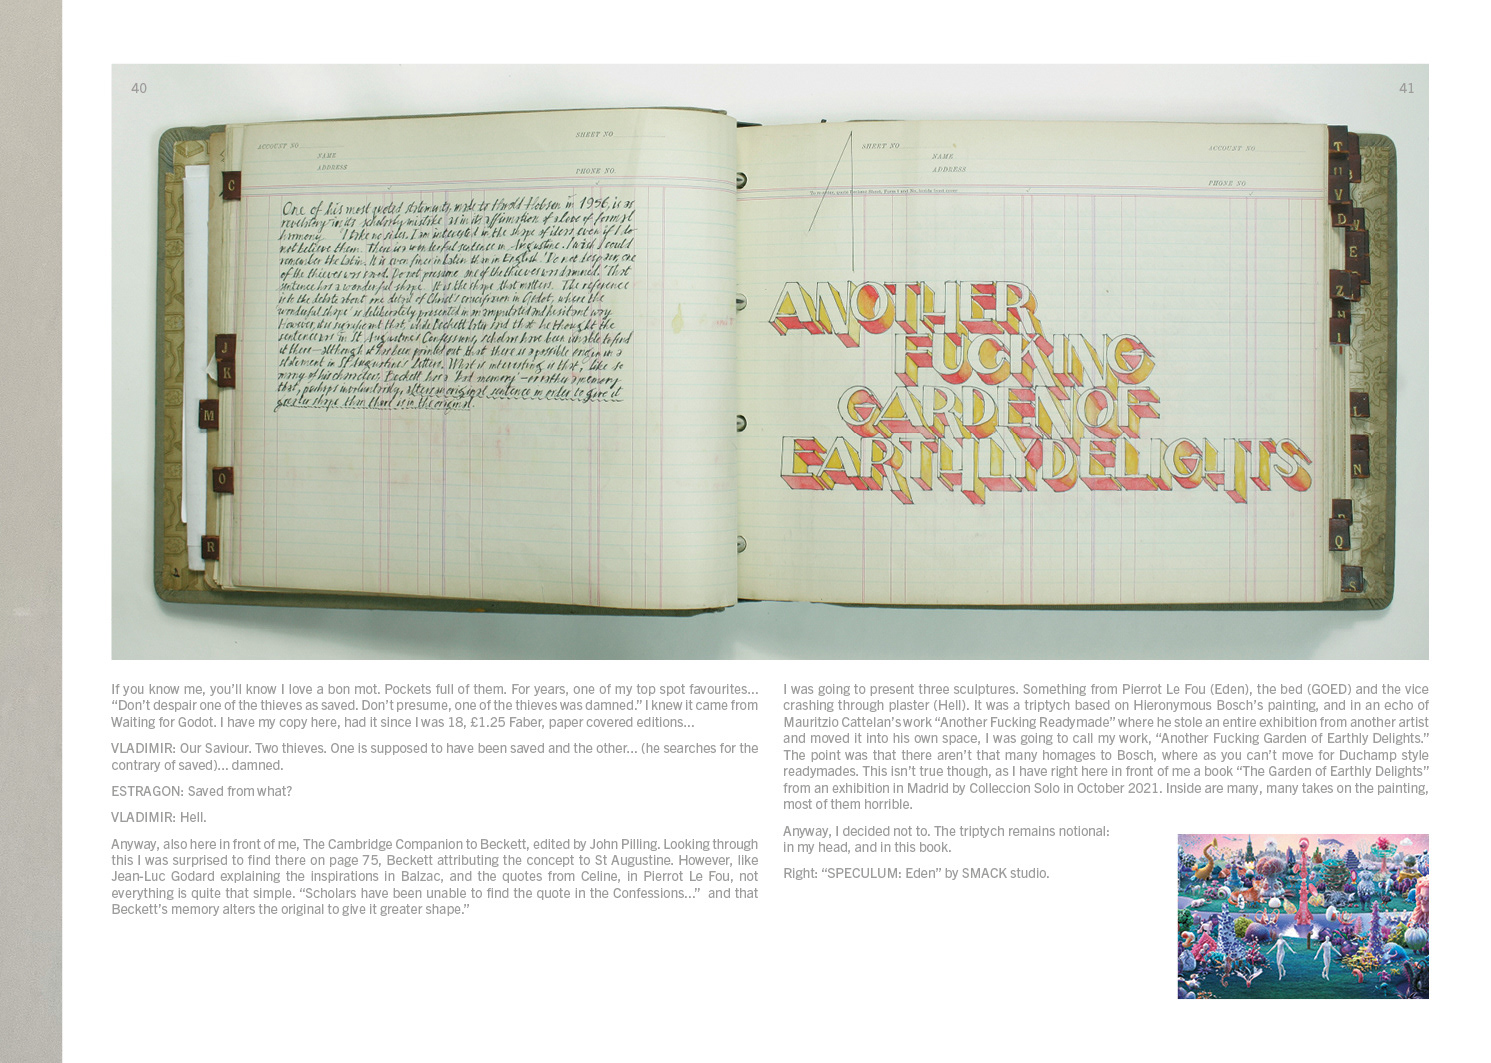 40
41
ACCOUNT NO.
SHEET NO
NAME
ADDRESS
PHONE NO.
SHEET NO
ACCOUNT NO.
NAME
ADDRESS
PHONE NO.
C
J
K
M
O
R
T
U
V
D
E
Z
I
L
N
Q
S
One of his most quoted statements, made to Harold Hobson in 1956, is as
revelatory in its scholarly mistake as in its affirmation of a love of formal
harmony. 'I take no sides. I am interested in the shape of ideas even if I do
not believe them. There is a wonderful sentence in Augustine. I wish I could
remember the Latin. It is even finer in Latin than in English. 'Do not despair; one
of the thieves was saved. Do not presume: one of the thieves was damned.' That
sentence has a wonderful shape. It is the shape that matters.' The reference
is to the debate about one detail of Christ's crucifixion in Godot, where the
'wonderful shape' is deliberately presented in an amputated and hesitant way.
However, it is significant that, while Beckett later said that he thought the
sentence was in St. Augustine's Confessions, scholars have been unable to find
it there—although it has been pointed out that there is a possible origin in a
statement in St Augustine's Letters. What is interesting is that, like so
many of his characters, Beckett has a 'bad memory'—or rather a memory
that, perhaps involuntarily, alters an original sentence in order to give it
greater shape than there is in the original.
ANOTHER
FUCKING
GARDEN OF
EARTHLY DELIGHTS
If you know me, you'll know I love a bon mot. Pockets full of them. For years, one of my top spot favourites...
“Don't despair one of the thieves as saved. Don't presume, one of the thieves was damned.” I knew it came from
Waiting for Godot. I have my copy here, had it since I was 18, £1.25 Faber, paper covered editions...
VLADIMIR: Our Saviour. Two thieves. One is supposed to have been saved and the other... (he searches for the
contrary of saved)... damned.
ESTRAGON: Saved from what?
VLADIMIR: Hell.
Anyway, also here in front of me, The Cambridge Companion to Beckett, edited by John Pilling. Looking through
this I was surprised to find there on page 75, Beckett attributing the concept to St Augustine. However, like
Jean-Luc Godard explaining the inspirations in Balzac, and the quotes from Celine, in Pierrot Le Fou, not
everything is quite that simple. “Scholars have been unable to find the quote in the Confessions...” and that
Beckett's memory alters the original to give it greater shape.”
I was going to present three sculptures. Something from Pierrot Le Fou (Eden), the bed (GOED) and the vice
crashing through plaster (Hell). It was a triptych based on Hieronymous Bosch's painting, and in an echo of
Mauritzio Cattelan's work “Another Fucking Readymade” where he stole an entire exhibition from another artist
and moved it into his own space, I was going to call my work, “Another Fucking Garden of Earthly Delights.”
The point was that there aren't that many homages to Bosch, where as you can't move for Duchamp style
readymades. This isn't true though, as I have right here in front of me a book “The Garden of Earthly Delights”
from an exhibition in Madrid by Colleccion Solo in October 2021. Inside are many, many takes on the painting,
most of them horrible.
Anyway, I decided not to. The triptych remains notional:
in my head, and in this book.
Right: “SPECULUM: Eden” by SMACK studio.